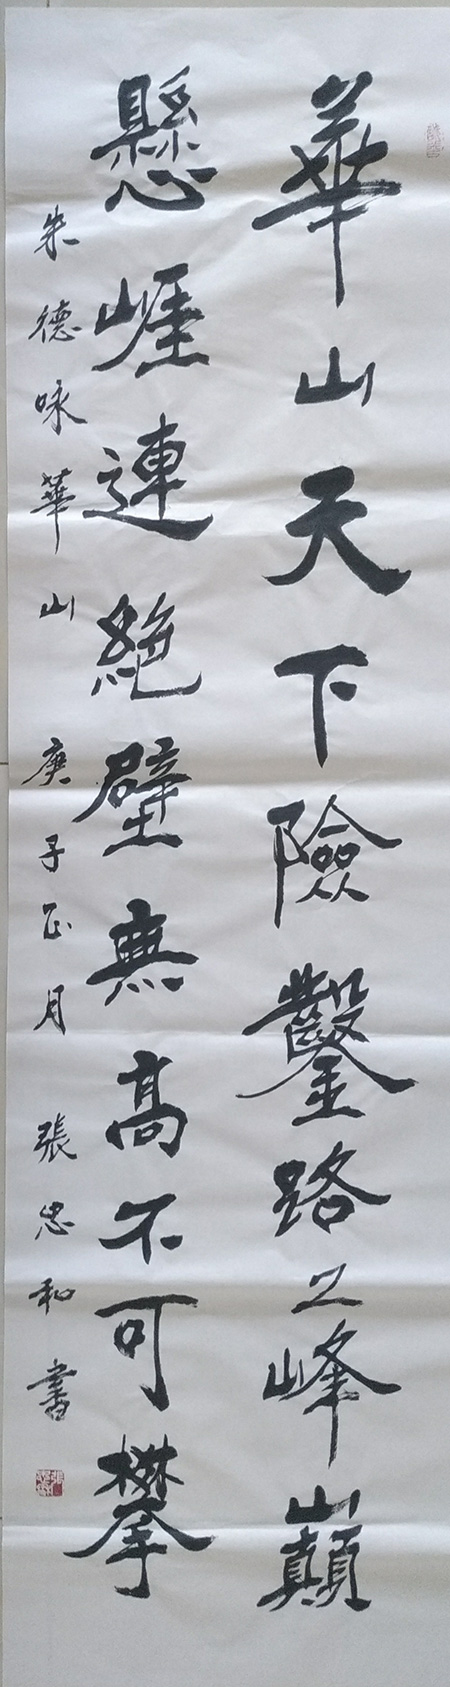 華山天下險鑿路之峰巔
懸崕連絕壁無高不可攀
朱德咏華山 庚子正月 張忠和書